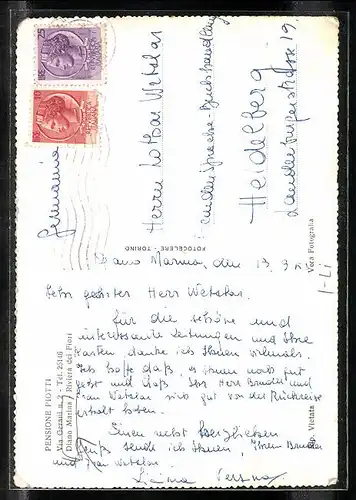 Germania
Herrn Lothar Wetzlar
Heidelberg
FOTOCELERE - TORINO
Vera Fotografia
PENSIONE PIOTTI
Via Gerani n. 2 - Tel. 25146
Diano Marina / Riviera dei Fiori
Rip. Vietata
1-Li
Diano Marina, den 13.
Sehr geehrter Herr Wetzlar.
Für die schöne und
interessante Zeitungen und Ihre
Karten danke ich Ihnen vielmals.
Ich hoffe daß, es Ihnen noch gut
geht und daß Ihr Herr Bruder und
Frau Wetzlar sich gut von der Rückreise
erholt haben.
Einen nebst herzlichen
Gruß sende ich Ihnen, Ihrem Bruder
und Frau Wetzlar.